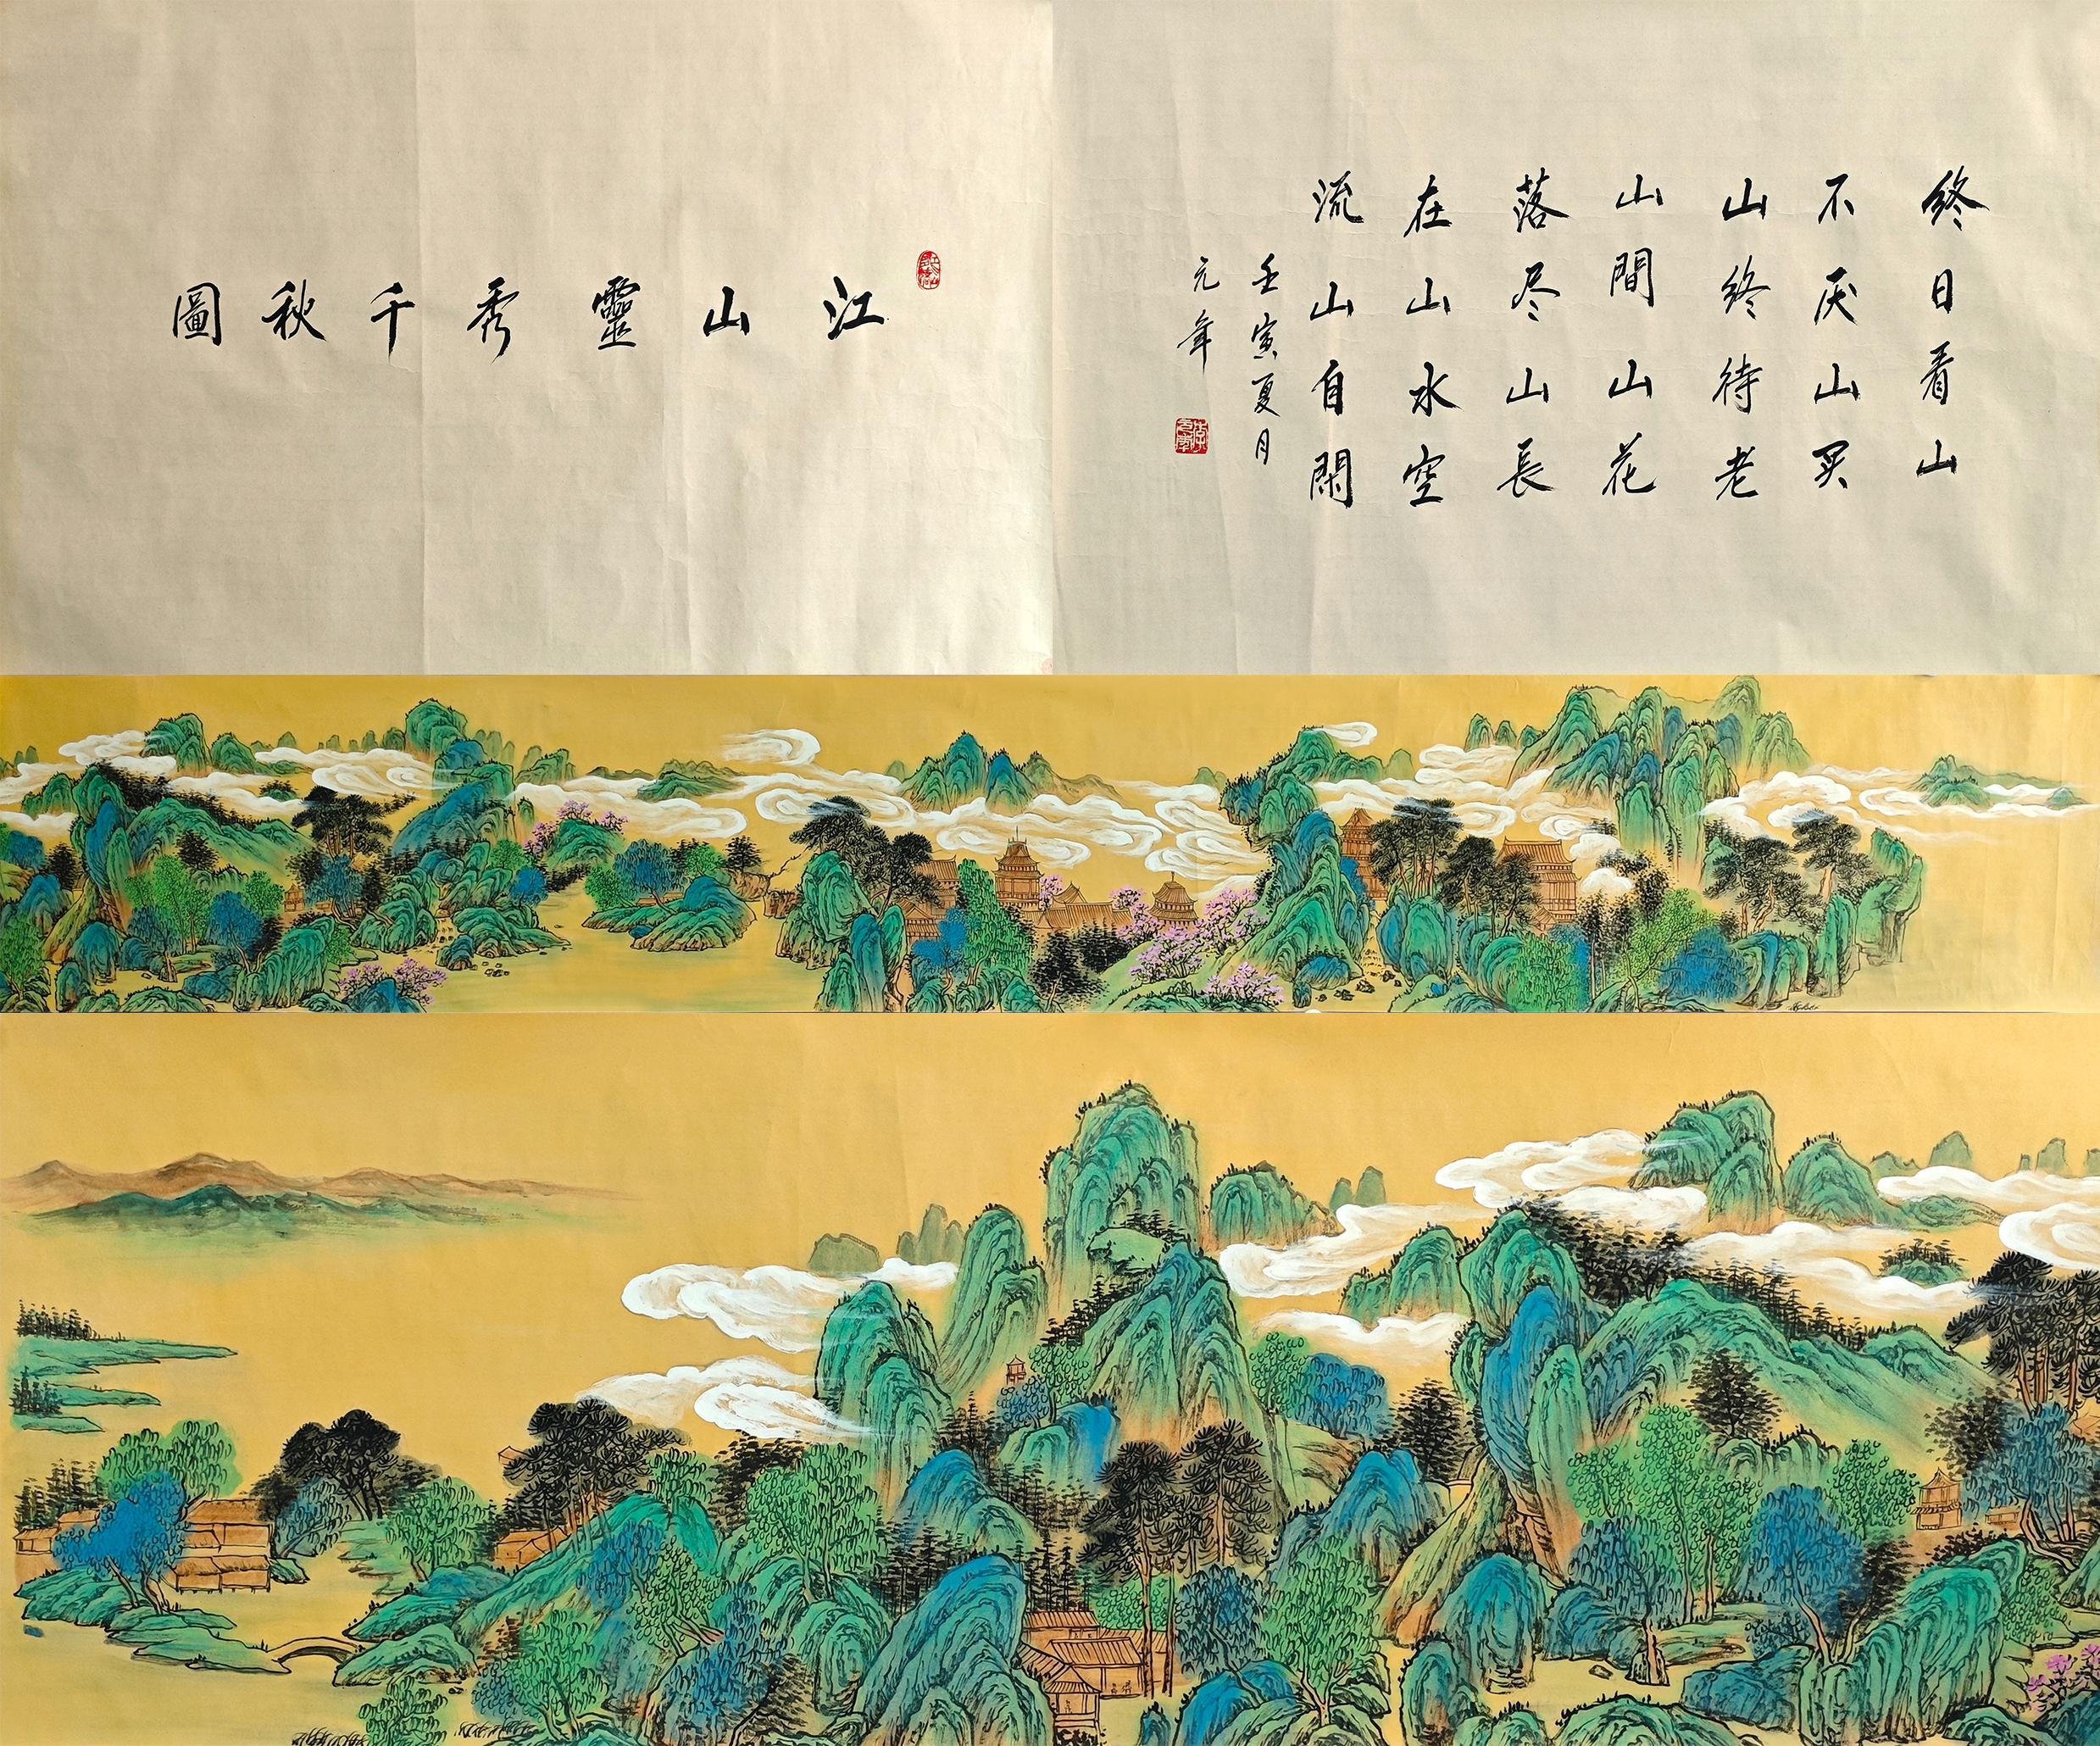 終日看山
不厌山买
山終待老
山間山花
落尽山長
在山水空
流山自閑
壬寅夏月
元年
江山靈秀千秋圖